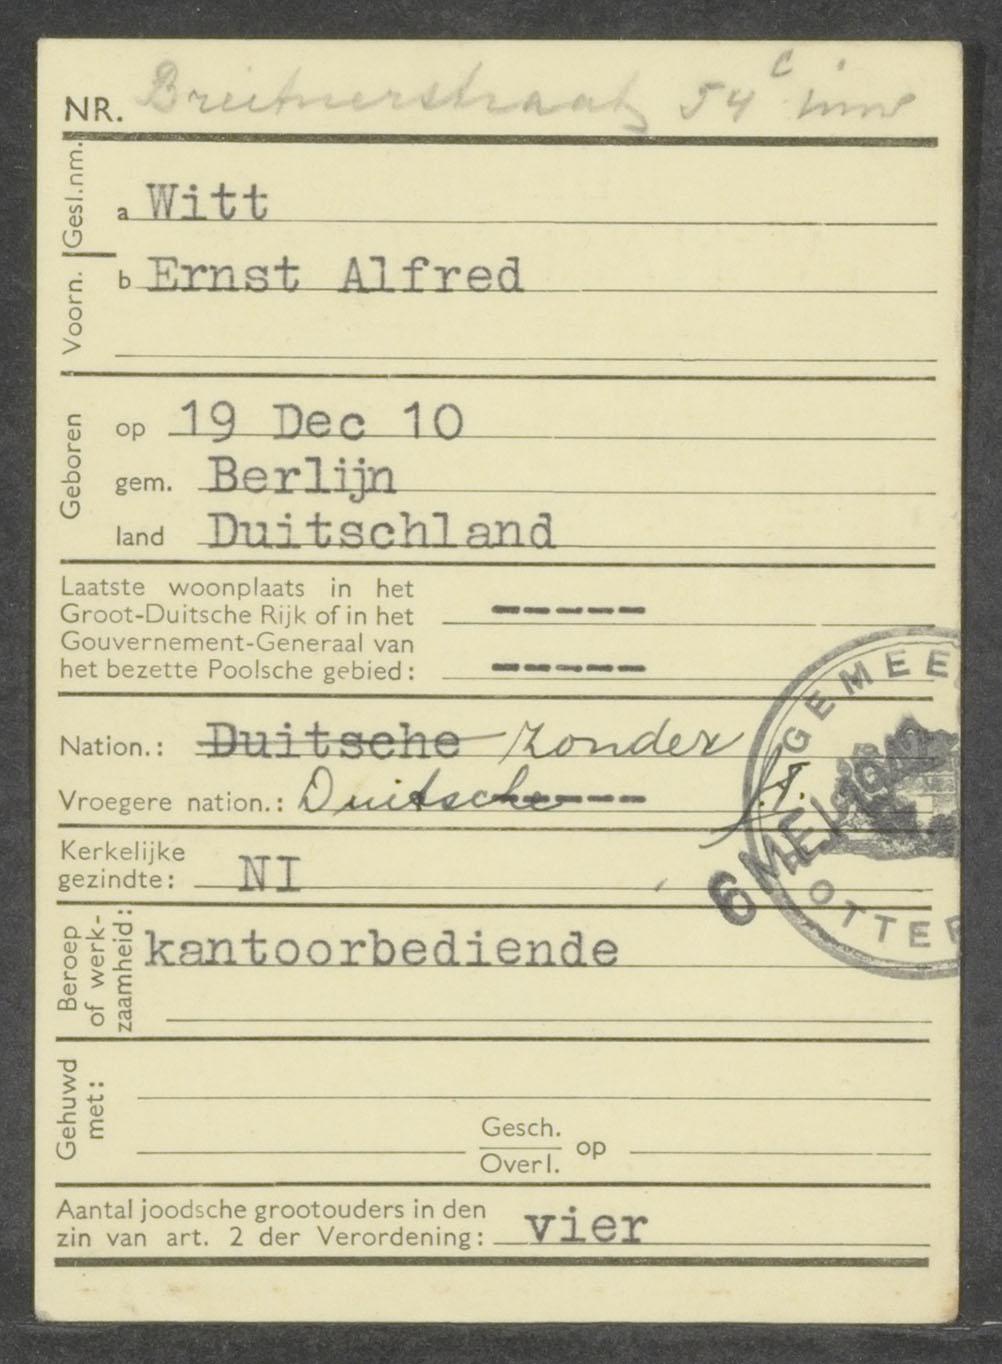 NR. Breitnerstraat 54 c
Gesl.nm. a Witt
Voorn. b Ernst Alfred
Geboren op 19 Dec 10
gem. Berlijn
land Duitschland
Laatste woonplaats in het
Groot-Duitsche Rijk of in het -----
Gouvernement-Generaal van
het bezette Poolsche gebied: -----
Nation.: Duitsche zonder
Vroegere nation.: Duitsche -----
GEMEE
6 MEI 1942
OTTER
Kerkelijke
gezindte: NI
Beroep
of werk-
zaamheid: kantoorbediende
Gehuwd
met:
Gesch.
Overl. op
Aantal joodsche grootouders in den
zin van art. 2 der Verordening: vier